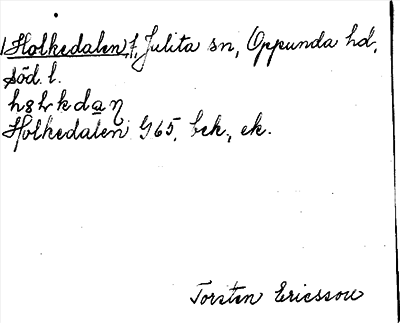 Holkedalen, f, Julita sn, Oppunda hd,
söd. l.
Holkedalen G65, bek., ek.
Torsten Ericsson